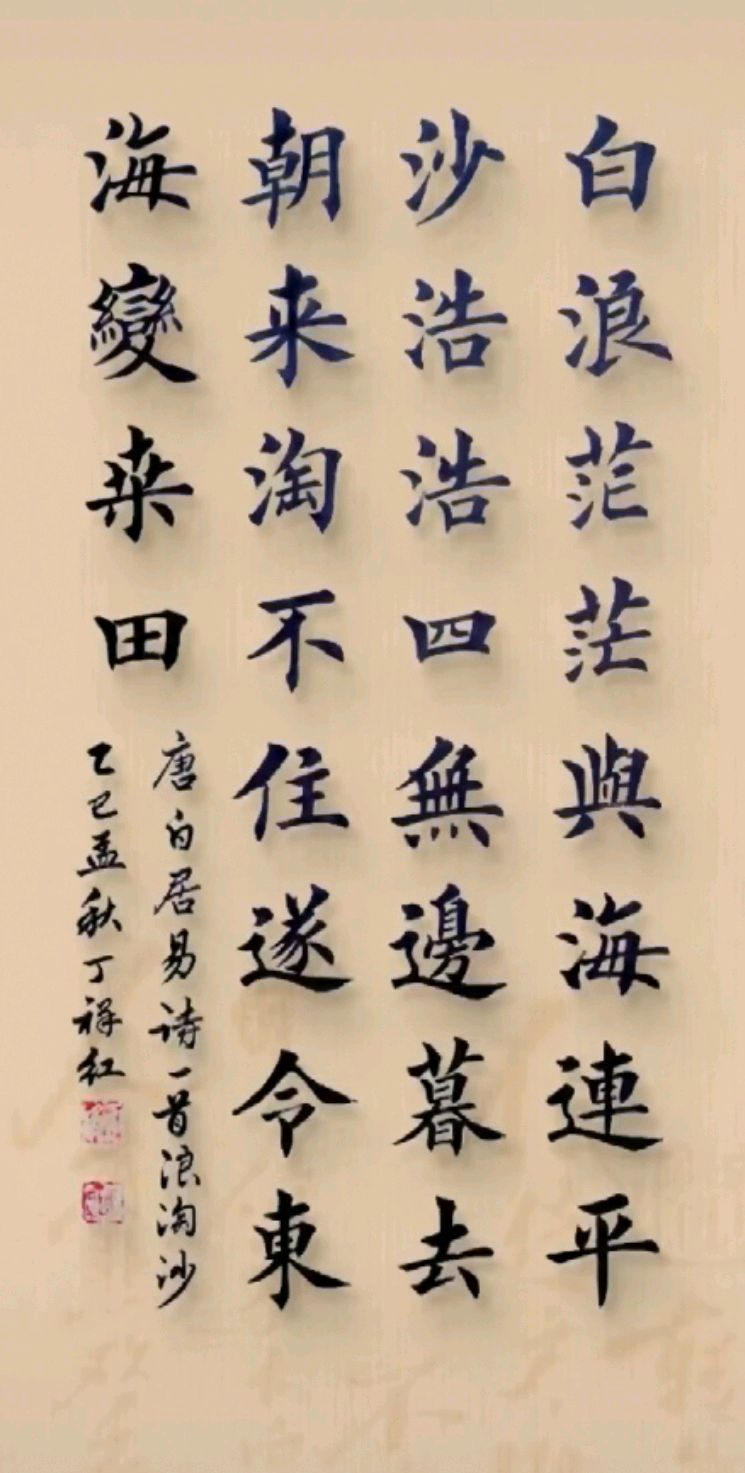 白浪茫茫與海連平
沙浩浩四無邊暮去
朝来淘不住遂令東
海變桒田
唐白居易诗一首浪淘沙
乙巳孟秋丁祥红